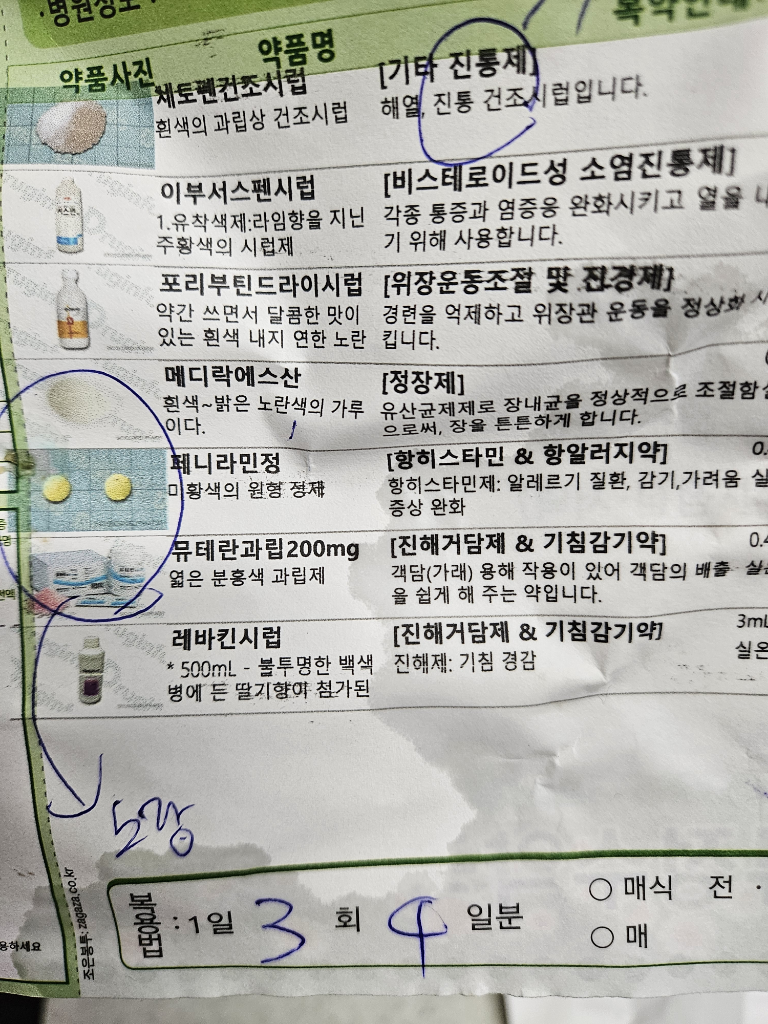 ·병원정보 :
복약안내
약품사진 약품명
세토펜건조시럽 [기타 진통제]
흰색의 과립상 건조시럽 해열, 진통 건조시럽입니다.
이부서스펜시럽 [비스테로이드성 소염진통제]
1.유착색제:라임향을 지닌 각종 통증과 염증응 완화시키고 열을 내
주황색의 시럽제 기 위해 사용합니다.
포리부틴드라이시럽 [위장운동조절 및 진경제]
약간 쓰면서 달콤한 맛이 경련을 억제하고 위장관 운동을 정상화 시
있는 흰색 내지 연한 노란 킵니다.
메디락에스산 [정장제]
흰색~밝은 노란색의 가루 유산균제제로 장내균을 정상적으로 조절함
이다. 으로써, 장을 튼튼하게 합니다.
페니라민정 [항히스타민 & 항알러지약] 0.
미황색의 원형 정제 항히스타민제: 알레르기 질환, 감기,가려움 실
증상 완화
뮤테란과립200mg [진해거담제 & 기침감기약] 0.4
엷은 분홍색 과립제 객담(가래) 용해 작용이 있어 객담의 배출 실온
을 쉽게 해 주는 약입니다.
레바킨시럽 [진해거담제 & 기침감기약] 3mL
* 500mL - 불투명한 백색 진해제: 기침 경감 실온
병에 든 딸기향이 첨가된
조은봉투: zagaza.co.kr
용하세요
복용법 : 1일 3 회 4 일분
○ 매식 전 ·
○ 매